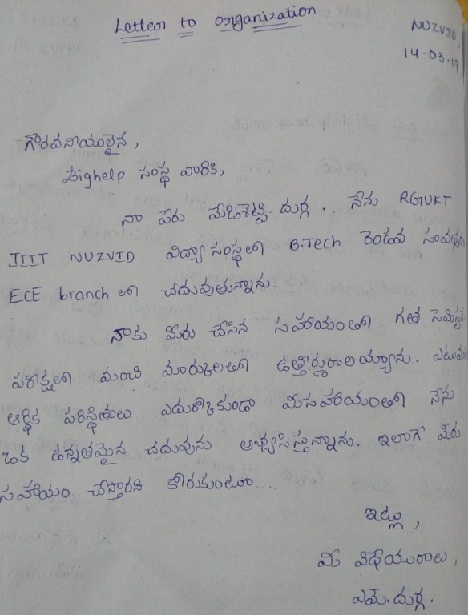 Letter to organization
NUZVID.
14-03-19
గౌరవనీయులైన,
Bighelp సంస్థ వారికి,
నా పేరు మేడిశెట్టి. దుర్గ. నేను RGUKT
IIIT NUZVID విద్యా సంస్థలో B.Tech రెండవ సంవత్సరం
ECE branch లో చదువుతున్నాను.
నాకు మీరు చేసిన సహాయంతో గత సెమిస్టర్
పరీక్షలో మంచి మార్కులతో ఉత్తీర్ణురాలియ్యాను. ఎటువంటి
ఆర్థిక పరిస్థితులు ఎదుర్కోకుండా మీసహాయంతో నేను
ఒక ఉన్నతమైన చదువును అభ్యసిస్తున్నాను. ఇలాగే మీరు
సహాయం చేస్తారని కోరుకుంటూ...
ఇట్లు,
మీ విధేయురాలు,
ఎమ్. దుర్గ.